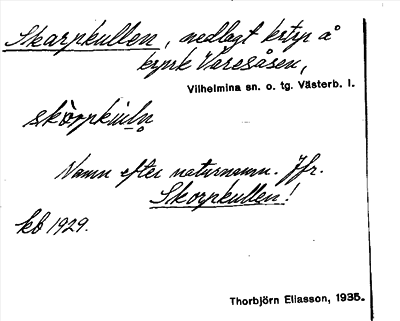 Skarpkullen, nedlagt krtrp å
kynk Varesåsen,
Vilhelmina sn. o. tg. Västerb. l.
skὸrpkuln
Namn efter naturnamn. Jfr.
Skorpkullen!
kb 1929.
Thorbjörn Eliasson, 1935.